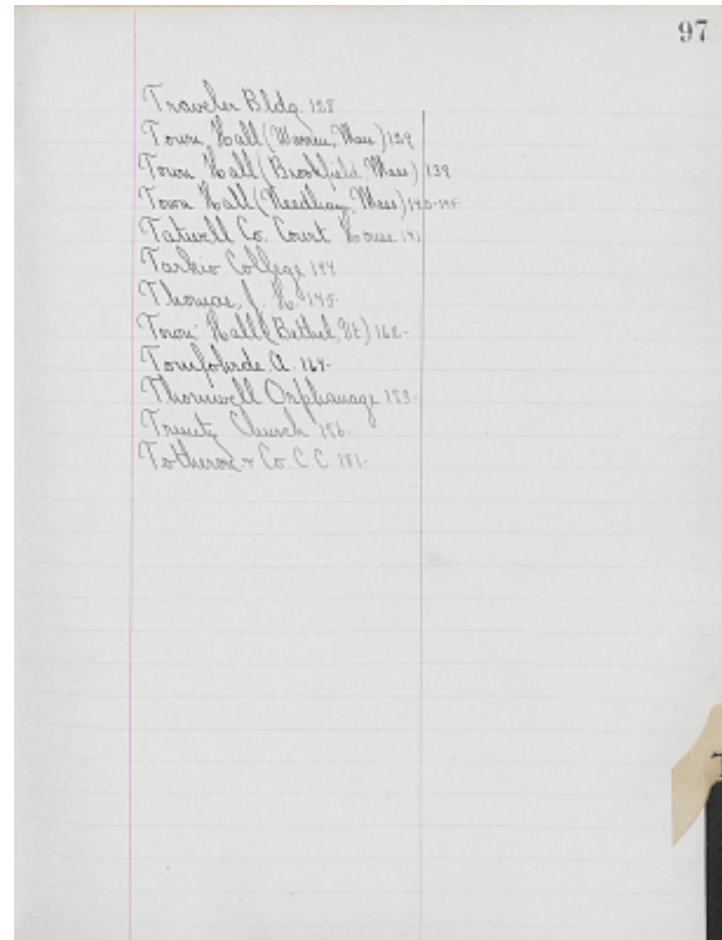 97
Traveler Bldg. 138
Town Hall (Warren, Mass) 139
Town Hall (Brookfield, Mass) 139
Town Hall (Needham, Mass) 140-
Tatwell Co. Court House 141
Tarkio College 144
Thomas, J. H. 145-
Town Hall (Bethel, Vt) 162-
Tomfohrde, A. 164-
Thornwell Orphanage 183-
Trinity Church 186-
& Co. C. C. 181-
T